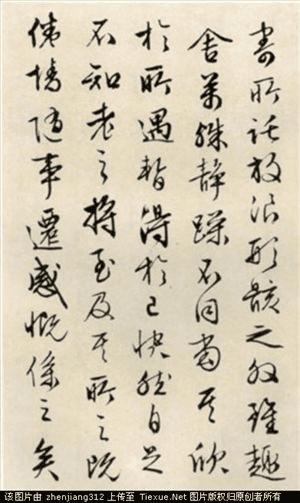 寄所託放浪形骸之外雖趣
舍萬殊靜躁不同當其欣
於所遇暫得於己快然自足
不知老之將至及其所之既
倦情隨事遷感慨係之矣
该图片由 zhenjiang312 上传至 Tiexue.Net 图片版权归原创者所有